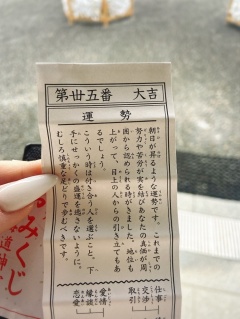 第廿五番 大吉
運勢
朝日が昇るような運勢です。これまでの
努力や苦労が実を結びあなたの真価が周
囲から認められる時がきました。地位も
上がって、目上の人からの引き立てもあ
るでしょう。
こういう時は付き合う人を選ぶこと。下
手にせっかくの盛運を逃さないように、
むしろ慎重な足どりで歩むべきです。
仕事
交渉
取引
愛情
縁談
恋愛
みくじ
道神